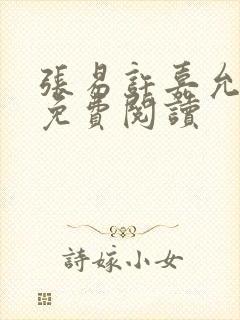 張易許嘉允
免費閱讀
詩嫁小女